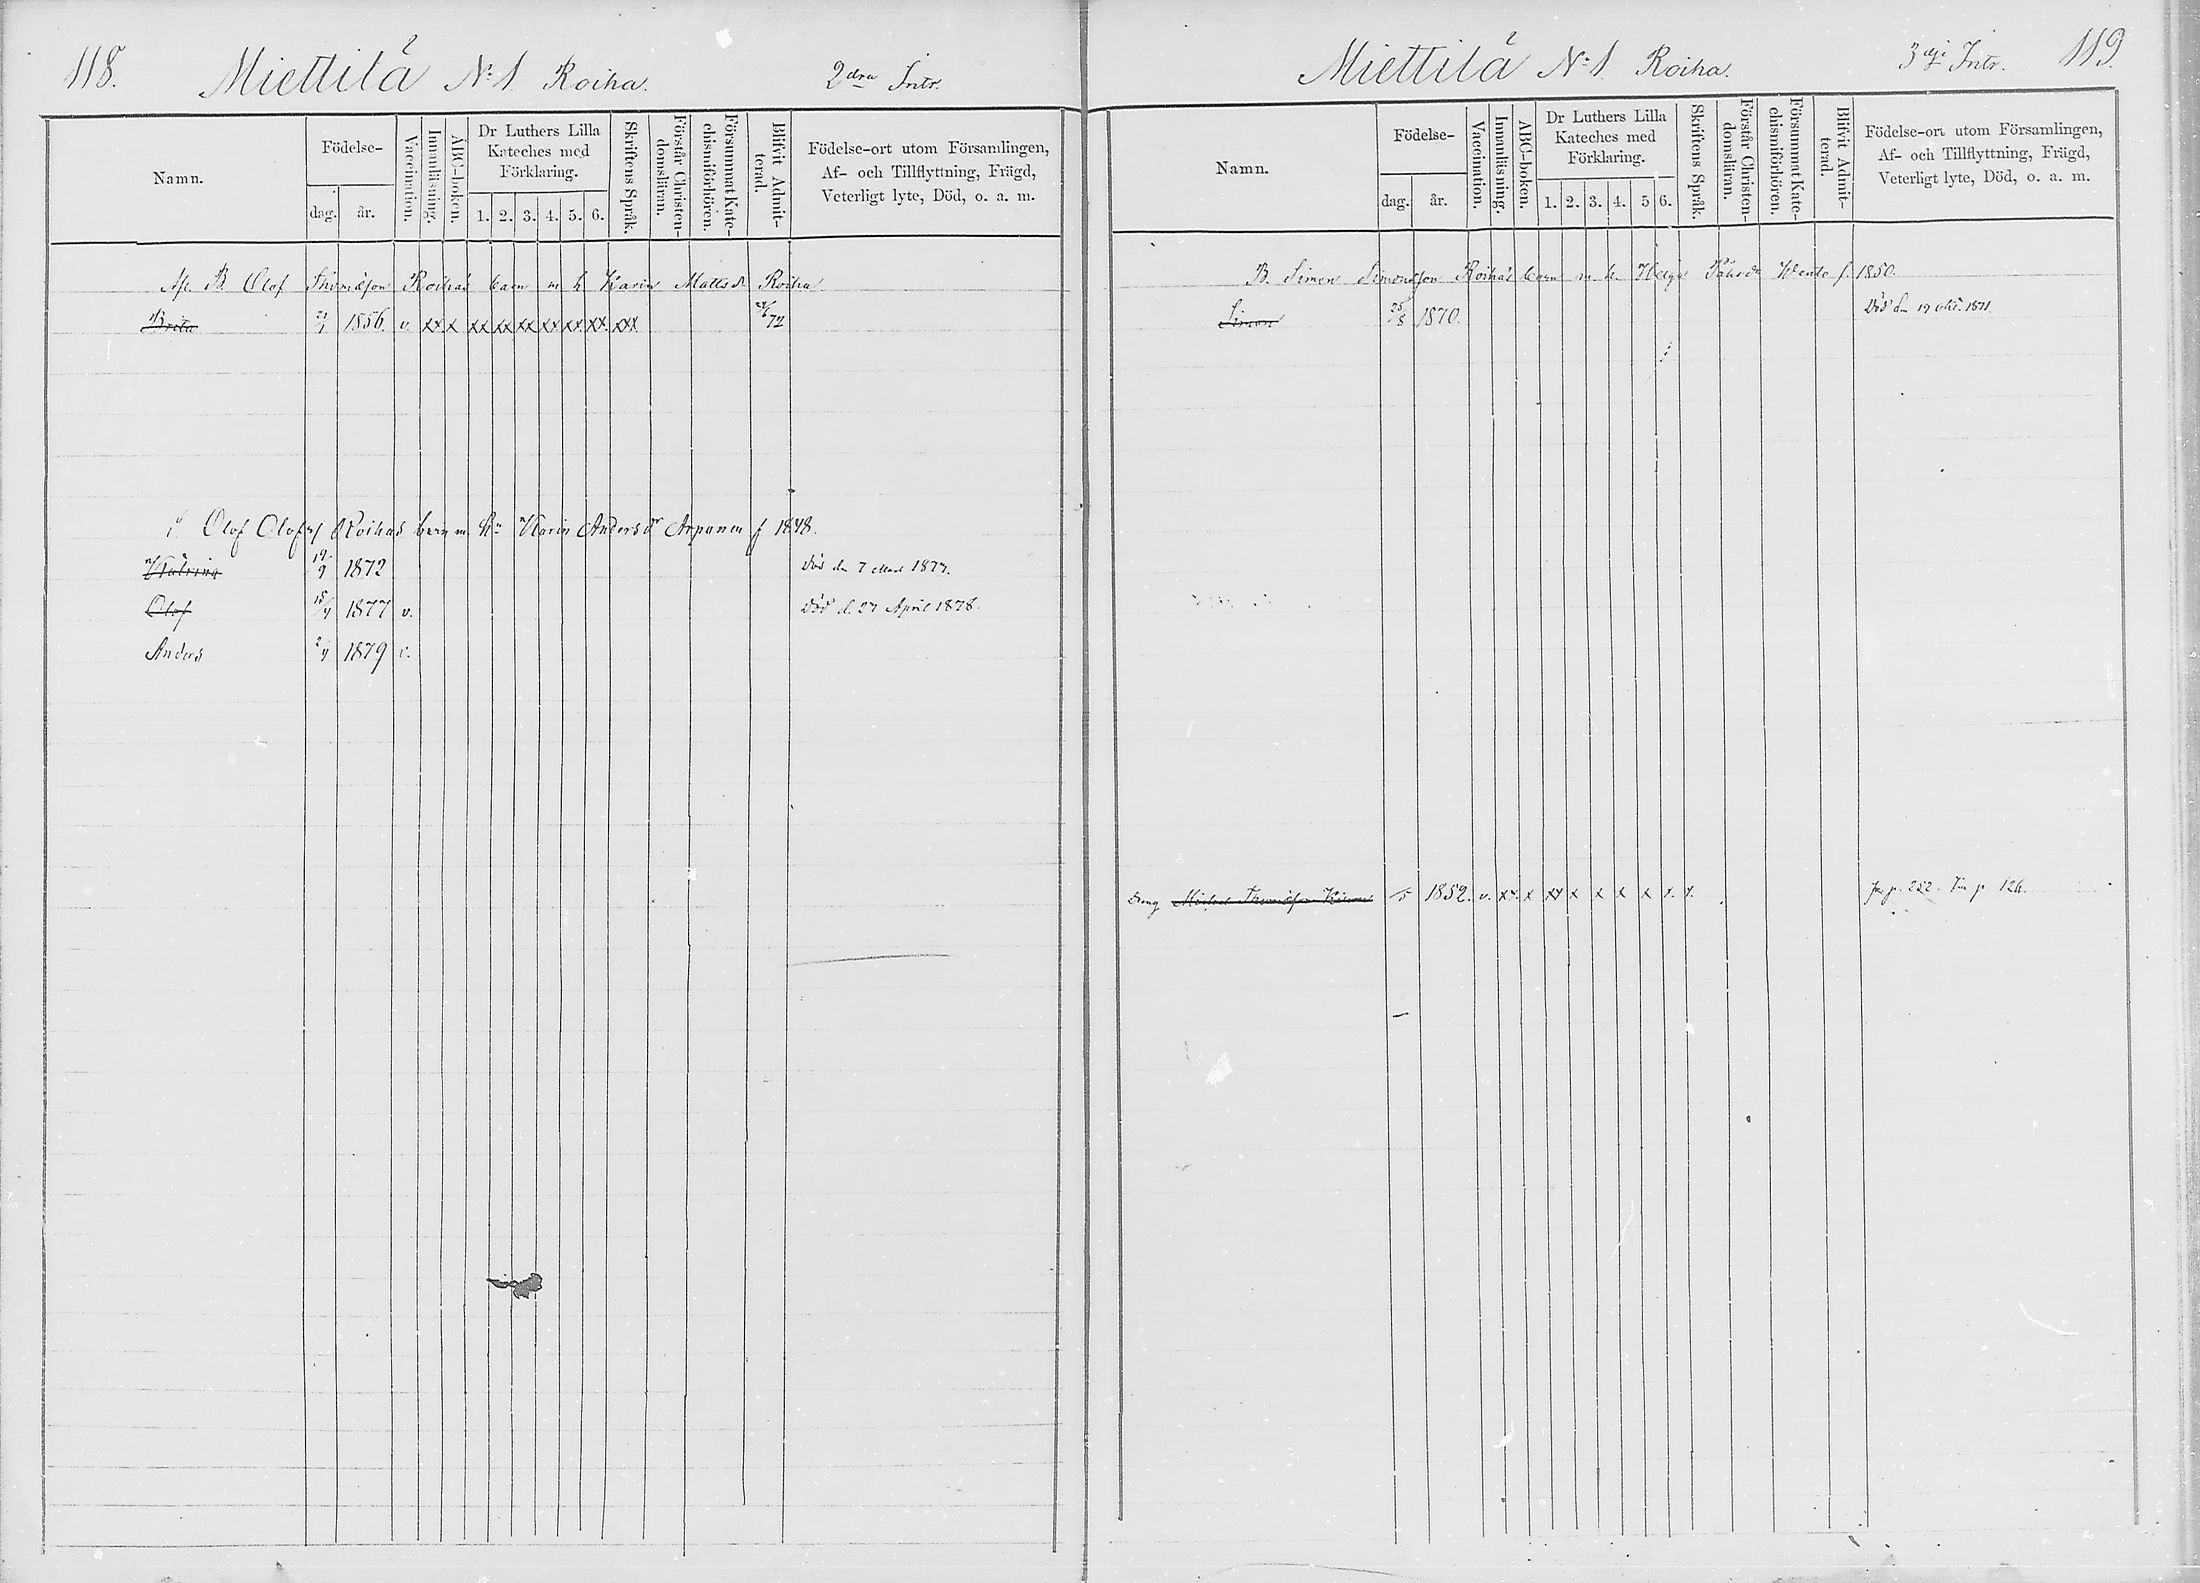 118. Miettilä N:1 Roiha. 2dra Intr.
Namn.
Födelse-
dag. år.
Vaccination.
Innanläsning.
ABC-boken.
Dr Luthers Lilla
Kateches med
Förklaring.
1. 2. 3. 4. 5. 6.
Skriftens Språk.
Förstår Christen-
domsläran.
Försummat Kate-
chismiförhören.
Blifvit Admit-
terad.
Födelse-ort utom Församlingen,
Af- och Tillflyttning, Frägd,
Veterligt lyte, Död, o. a. m.
B. Olof Thomasson Roihas barn m h Karin Mattsdr Roiha
Brita 1856. v. xx x xx xx xx xx xx xx. xxx 72
Olof Olofss Roihas barn m. hu Karin Andersdr Arpanen f 1848.
Katrina 19/9 1872 Död den 7 1877.
Olof 15/4 1877 v. Död d. 27 April 1878.
Anders 2/4 1879 v.
Miettilä N:1 Roiha. 3dje Intr. 119.
Namn.
Födelse-
dag. år.
Vaccination.
Innanläsning.
ABC-boken.
Dr Luthers Lilla
Kateches med
Förklaring.
1. 2. 3. 4. 5 6.
Skriftens Språk.
Förstår Christen-
domsläran.
Försummat Kate-
chismiförhören.
Blifvit Admit-
terad.
Födelse-ort utom Församlingen,
Af- och Tillflyttning, Frägd,
Veterligt lyte, Död, o. a. m.
B. Simon Simonsson Roihas barn m. h. Helga f. 1850.
Simon 25/8 1870. Död d. 19 1871.
Dreng 1852. v. xx. x xx x x x x x. x. p. 252. p. 126.